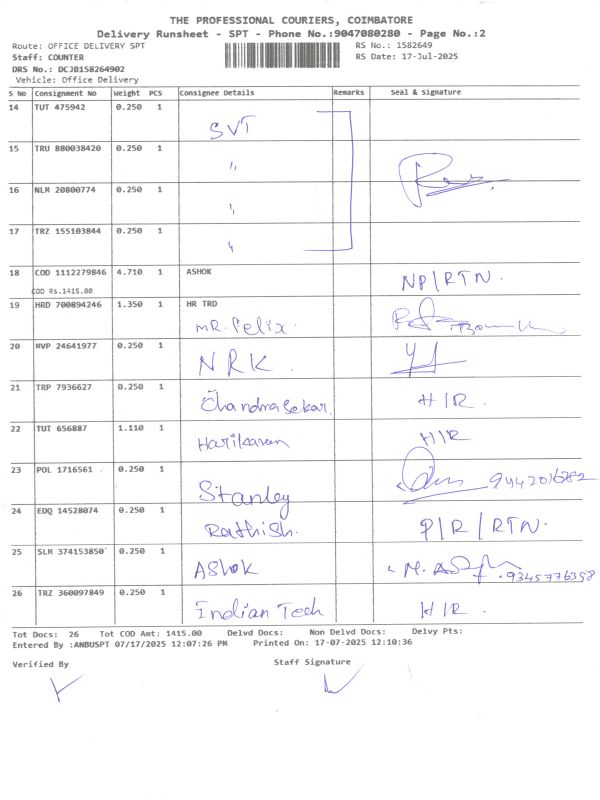 THE PROFESSIONAL COURIERS, COIMBATORE
Delivery Runsheet - SPT - Phone No.:9047080280 - Page No.:2
Route: OFFICE DELIVERY SPT RS No.: 1582649
Staff: COUNTER RS Date: 17-Jul-2025
DRS No.: DCJB158264902
Vehicle: Office Delivery
S No Consignment No Weight PCS Consignee Details Remarks Seal & Signature
14 TUT 475942 0.250 1
SVT
15 TRU 880038420 0.250 1
"
16 NLM 20800774 0.250 1
"
17 TRZ 155103844 0.250 1
"
18 COD 1112279846 4.710 1 ASHOK
NP/RTN.
COD Rs.1415.00
19 HRD 700894246 1.350 1 HR TRD
MR. Felix.
20 MVP 24641977 0.250 1
NRK.
21 TRP 7936627 0.250 1
Chandrasekar. H/R.
22 TUT 656887 1.110 1
Hariharan H/R
23 POL 1716561 0.250 1
Stanley 9442016282
24 EDQ 14528074 0.250 1
Rathish. P/R/RTN.
25 SLM 374153850 0.250 1
Ashok 9345776358
26 TRZ 360097849 0.250 1
Indian Tech H/R.
Tot Docs: 26 Tot COD Amt: 1415.00 Delvd Docs: Non Delvd Docs: Delvy Pts:
Entered By :ANBUSPT 07/17/2025 12:07:26 PM Printed On: 17-07-2025 12:10:36
Verified By Staff Signature